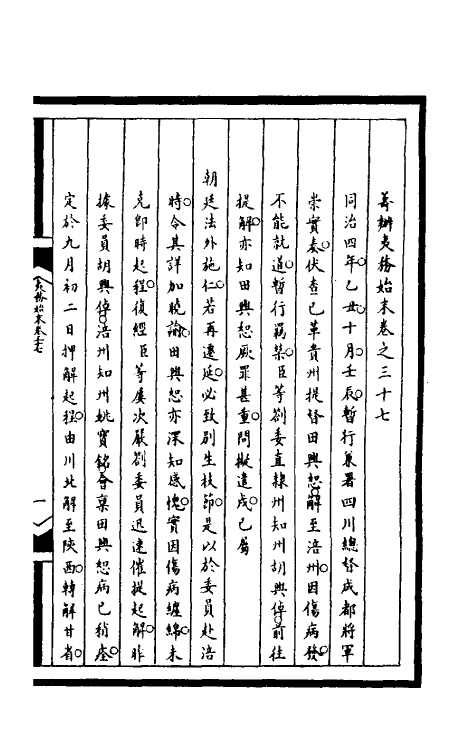 籌辦夷務始末卷之三十七
同治四年乙丑十月壬辰暫行兼署四川總督成都將軍
崇實奏伏查已革貴州提督田興恕解至涪州因傷病發
不能就道暫行羈禁臣等劄委直隸州知州胡興倬前往
提解亦知田興恕厥罪甚重問擬遣戍已屬
朝廷法外施仁若再遷延必致別生枝節是以於委員赴涪
時令其詳加曉諭田興恕亦深知感愧實因傷病纏綿未
克即時起程復經臣等屢次嚴劄委員迅速催提起解昨
據委員胡興倬涪州知州姚寶銘會稟田興恕病已稍痊
定於九月初二日押解起程由川北解至陝西轉解甘省
夷務始末卷三十七
一